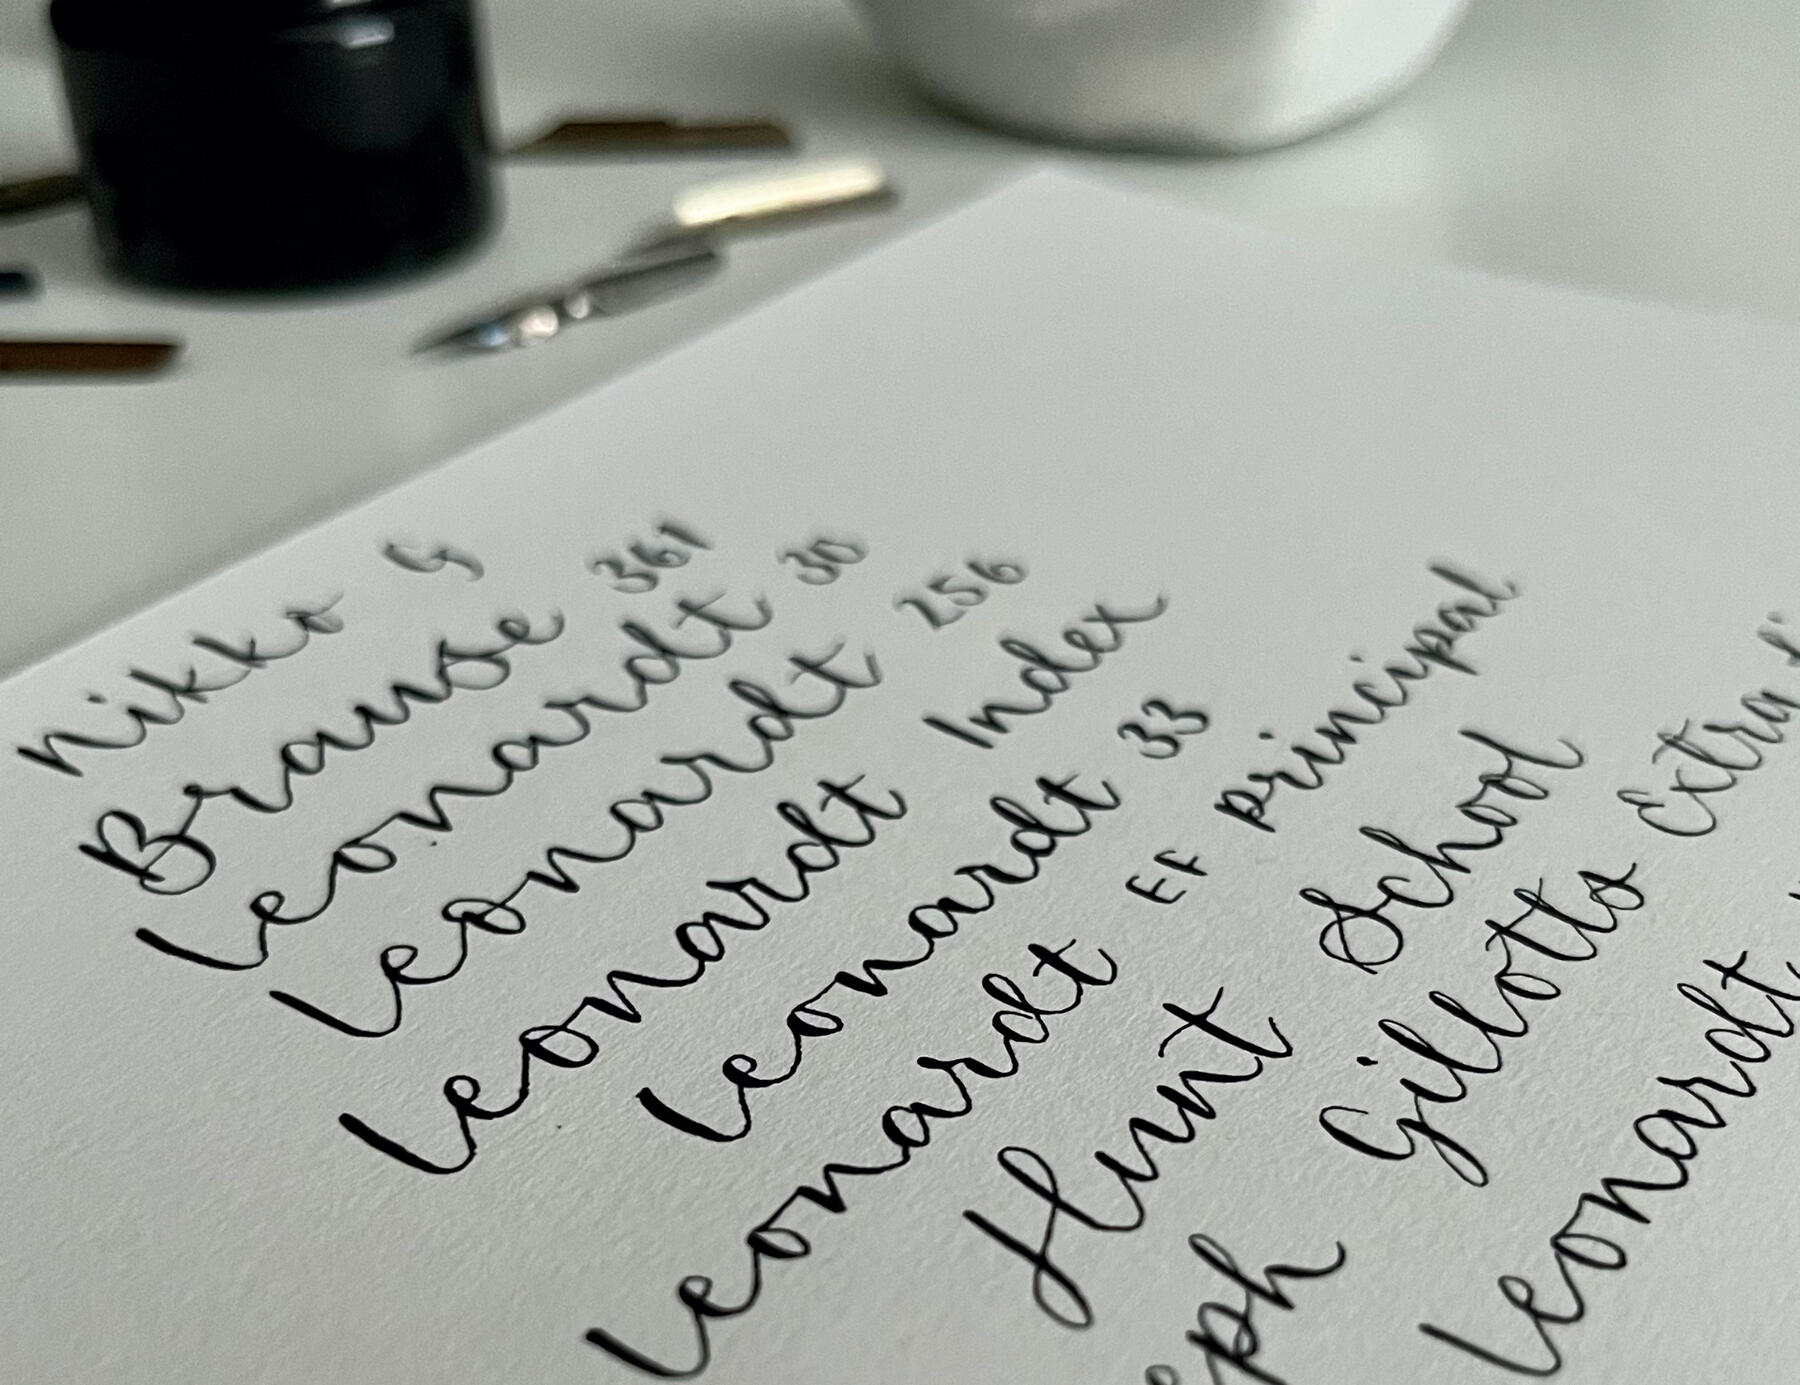 Nikko G
Brause 361
Leonardt 30
Leonardt 256
Leonardt Index
Leonardt 33
Leonardt EF Principal
Hunt School
eph Gillotts Extra
Leonardt